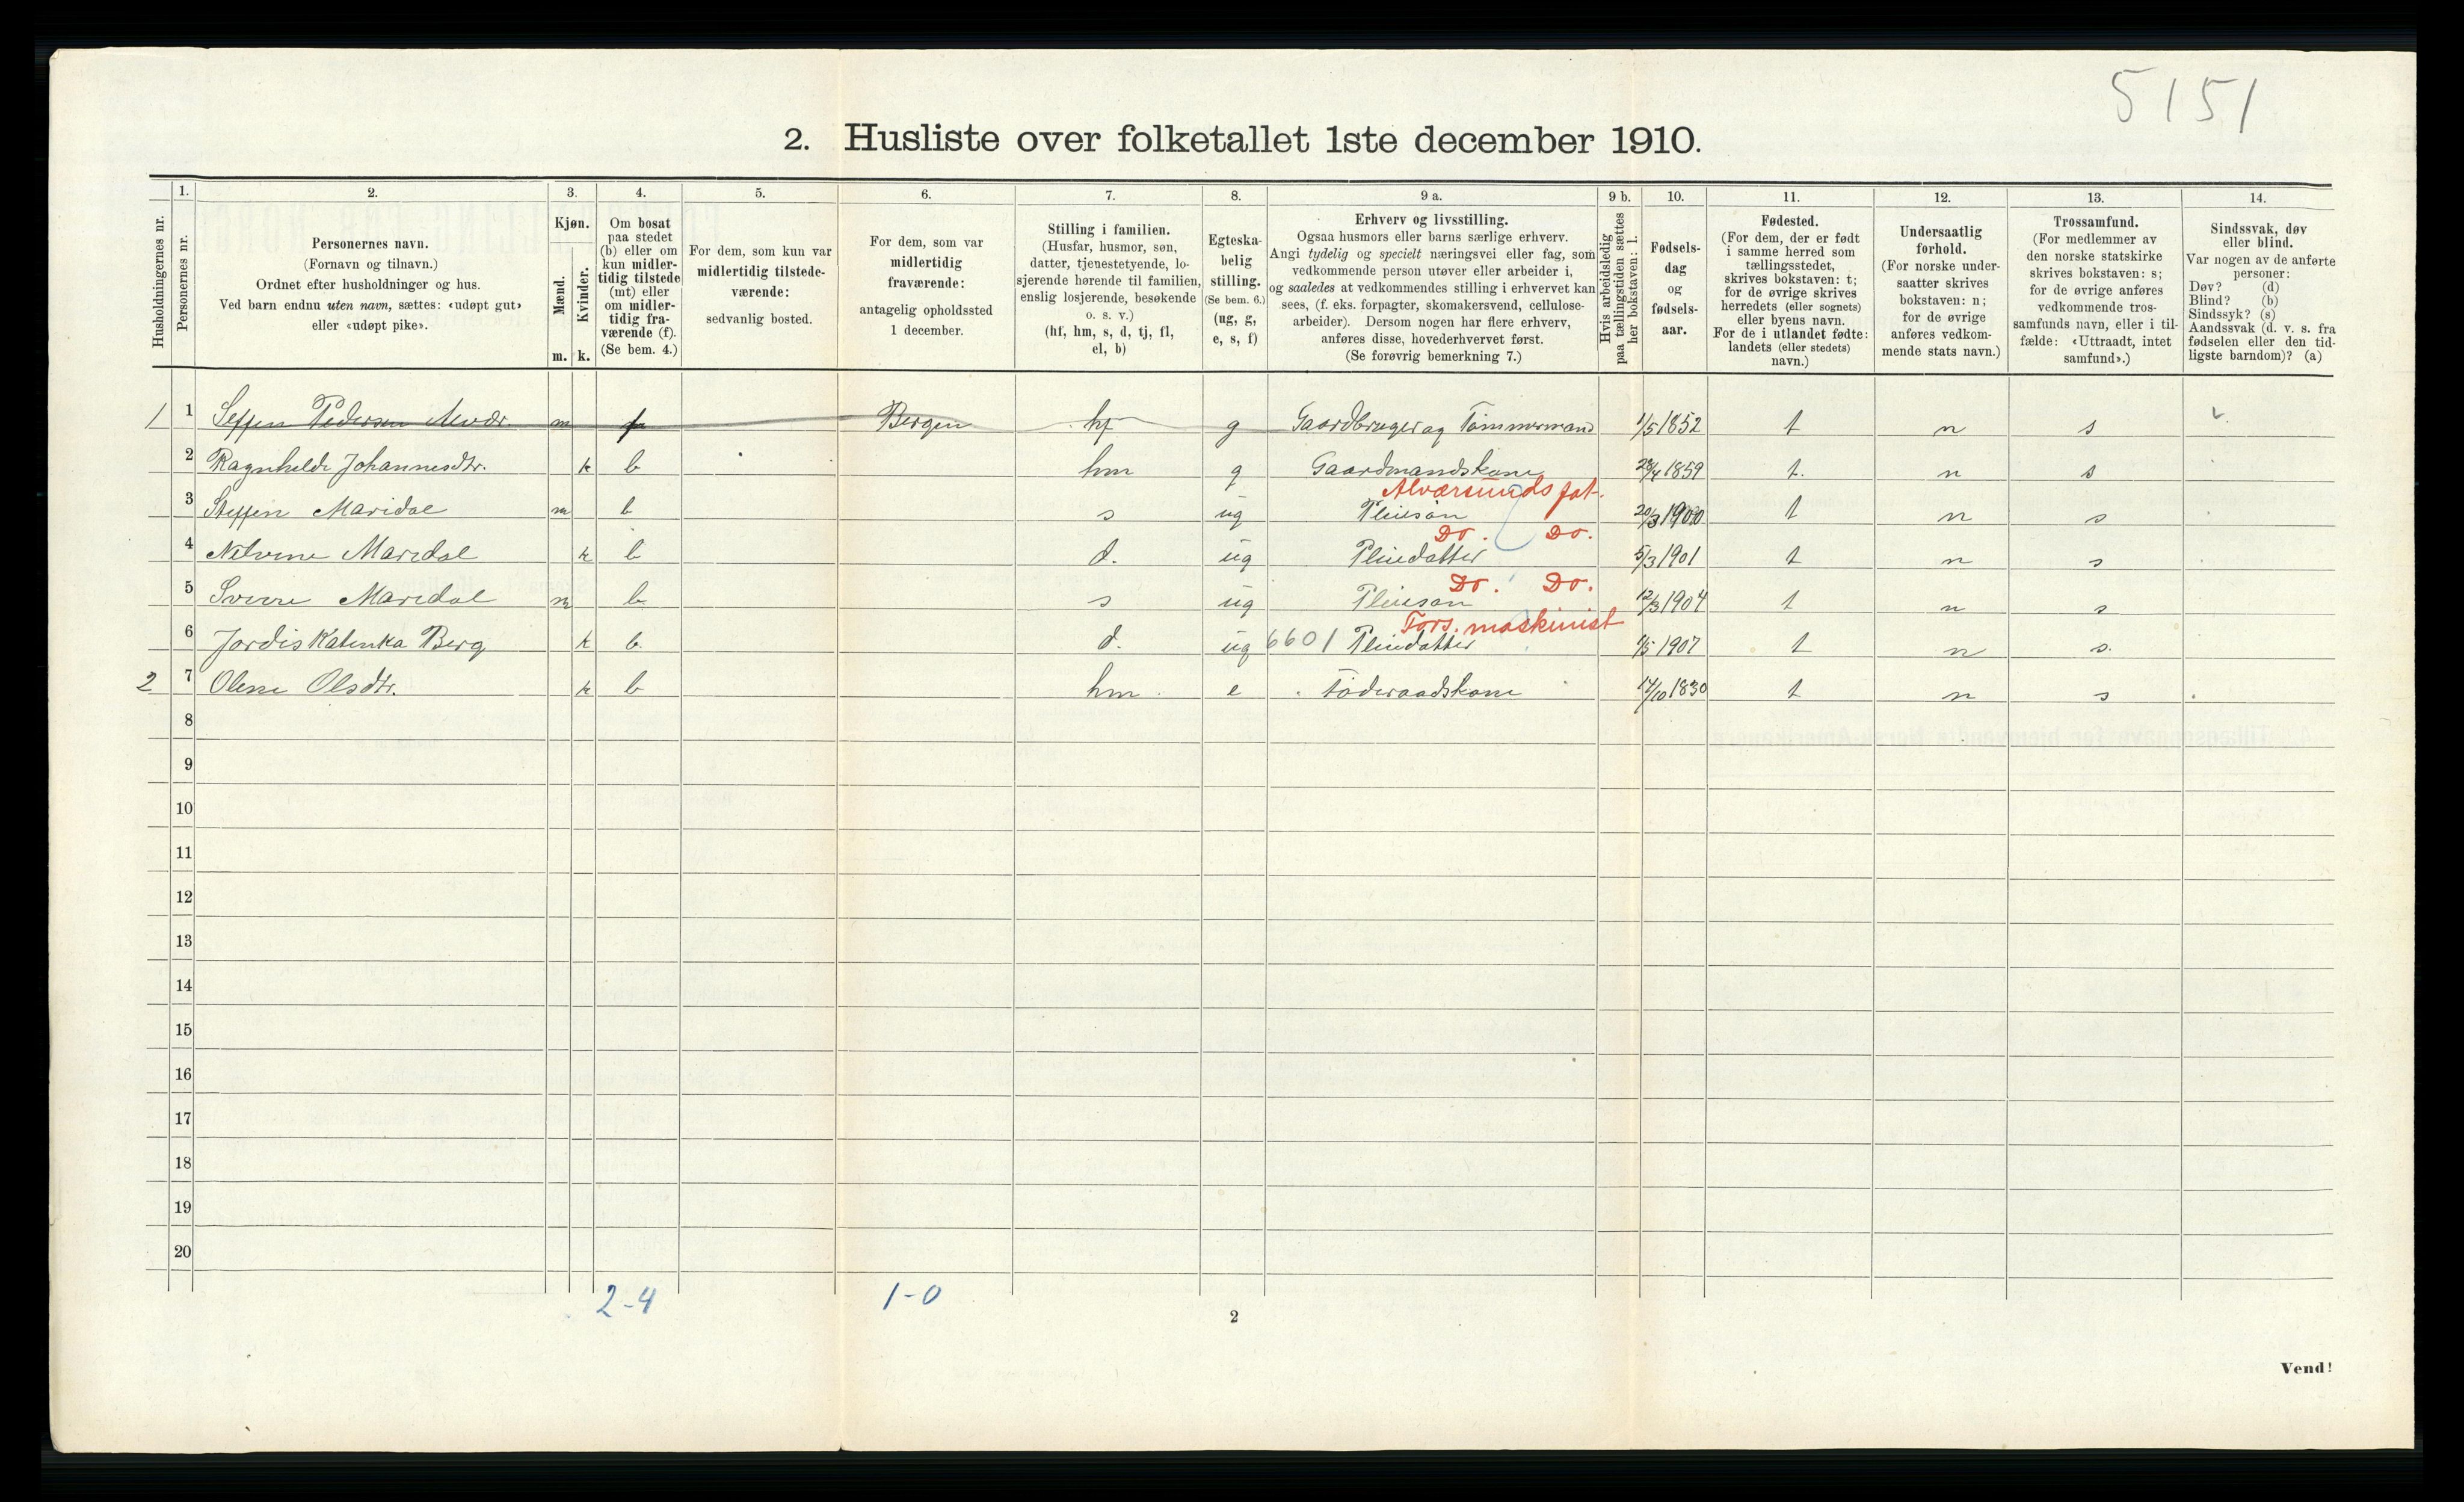 5151
2. Husliste over folketallet 1ste december 1910.
Husholdningernes nr.
1.
Personernes nr.
2.
Personernes navn.
(Fornavn og tilnavn.)
Ordnet efter husholdninger og hus.
Ved barn endnu uten navn, sættes: «udøpt gut»
eller «udøpt pike».
3.
Kjøn.
Mænd.
Kvinder.
m. k.
4.
Om bosat
paa stedet
(b) eller om
kun midler-
tidig tilstede
(mt) eller
om midler-
tidig fra-
værende (f).
(Se bem. 4.)
5.
For dem, som kun var
midlertidig tilstede-
værende:
sedvanlig bosted.
6.
For dem, som var
midlertidig
fraværende:
antagelig opholdssted
1 december.
7.
Stilling i familien.
(Husfar, husmor, søn,
datter, tjenestetyende, lo-
sjerende hørende til familien,
enslig losjerende, besøkende
o. s. v.)
(hf, hm, s, d, tj, fl,
el, b)
8.
Egteska-
belig
stilling.
(Se bem. 6.)
(ug, g,
e, s, f)
9 a.
Erhverv og livsstilling.
Ogsaa husmors eller barns særlige erhverv.
Angi tydelig og specielt næringsvei eller fag, som
vedkommende person utøver eller arbeider i,
og saaledes at vedkommendes stilling i erhvervet kan
sees, (f. eks. forpagter, skomakersvend, cellulose-
arbeider). Dersom nogen har flere erhverv,
anføres disse, hovederhvervet først.
(Se forøvrig bemerkning 7.)
9 b.
Hvis arbeidsledig
paa tællingstiden sættes
her bokstaven: l.
10.
Fødsels-
dag
og
fødsels-
aar.
11.
Fødested.
(For dem, der er født
i samme herred som
tællingsstedet,
skrives bokstaven: t;
for de øvrige skrives
herredets (eller sognets)
eller byens navn.
For de i utlandet fødte:
landets (eller stedets)
navn.)
12.
Undersaatlig
forhold.
(For norske under-
saatter skrives
bokstaven: n;
for de øvrige
anføres vedkom-
mende stats navn.)
13.
Trossamfund.
(For medlemmer av
den norske statskirke
skrives bokstaven: s;
for de øvrige anføres
vedkommende tros-
samfunds navn, eller i til-
fælde: «Uttraadt, intet
samfund».)
14.
Sindssvak, døv
eller blind.
Var nogen av de anførte
personer:
Døv? (d)
Blind? (b)
Sindssyk? (s)
Aandssvak (d. v. s. fra
fødselen eller den tid-
ligste barndom)? (a)
1 1 Pedersen m f Bergen hf g Gaardbruger og Tømmermand 1/5 1852 t n s
2 Ragnhilde Johannesdtr. k b hm g Gaardmandskone 28/4 1859 t. n s
Alværsunds fat.
3 Steffen Maridal m b s ug Pleiesøn 20/3 1900 t n s
Do. Do.
4 Nilvine Maridal k b d. ug Pleiedatter 5/3 1901 t n s
Do. Do.
5 Sverre Maridal m b. s ug Pleiesøn 12/3 1904 t n s
Fors. maskinist
6 Jordis Katinka Berg k b. d. ug 6601 Pleiedatter 1/5 1907 t n s.
2 7 Olene Olsdtr. k b hm e Føderaadskone 14/10 1830 t n s
8
9
10
11
12
13
14
15
16
17
18
19
20
2-4 1-0
2
Vend!